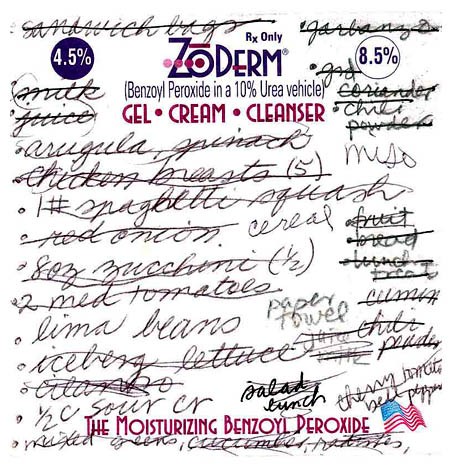 sandwich bags
garbanzo
Rx Only
4.5%
ZODERM®
8.5%
(Benzoyl Peroxide in a 10% Urea vehicle)
GEL • CREAM • CLEANSER
milk
grd
coriander
juice
chili
powder
arugula, spinach
miso
chicken breasts (5)
1# spaghetti squash
red onion
cereal
fruit
bread
lunch
treats
8oz zucchini (1/2)
2 med tomatoes
cumin
paper
towel
lima beans
chili
powder
iceberg lettuce
juice
milk
cilantro
salad
lunch
cherry tomato
bell pepper
1/2 c sour cr
THE MOISTURIZING BENZOYL PEROXIDE
mixed greens, cucumber, radishes,